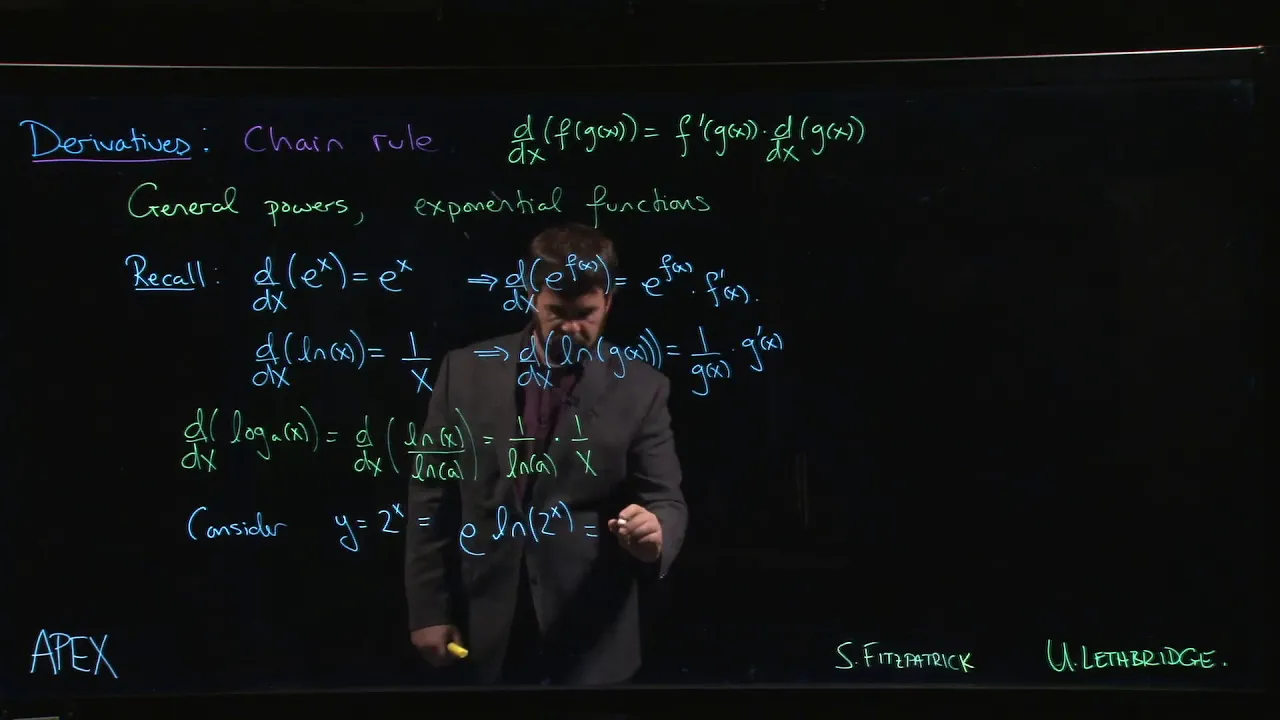 Derivatives: Chain rule. d/dx (f(g(x))) = f'(g(x)) · d/dx (g(x))
General powers, exponential functions
Recall: d/dx (e^x) = e^x ⇒ d/dx (e^f(x)) = e^f(x) · f'(x).
d/dx (ln(x)) = 1/x ⇒ d/dx (ln(g(x))) = 1/g(x) · g'(x)
d/dx (log_a(x)) = d/dx (ln(x)/ln(a)) = 1/ln(a) · 1/x
Consider y = 2^x = e^ln(2^x) =
APEX
S. FITZPATRICK U. LETHBRIDGE.